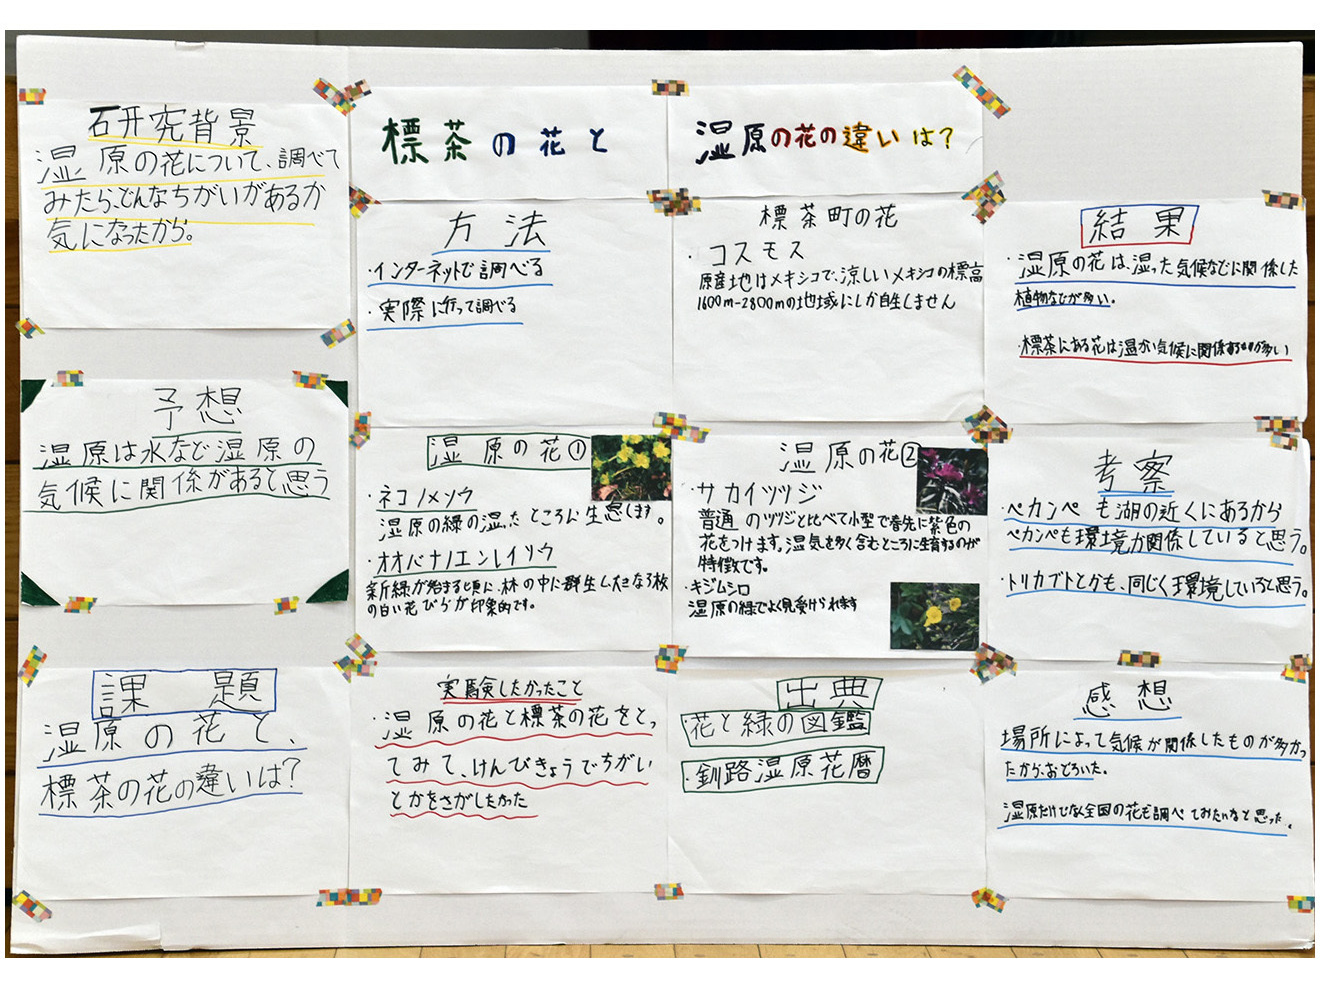 標茶の花と
湿原の花の違いは?
研究背景
湿原の花について、調べて
みたら、どんなちがいがあるか
気になったから。
予想
湿原は水など湿原の
気候に関係があると思う
課題
湿原の花と、
標茶の花の違いは?
方法
・インターネットで調べる
・実際に行って調べる
標茶町の花
・コスモス
原産地はメキシコで、涼しいメキシコの標高
1600m-2800mの地域にしか自生しません
結果
・湿原の花は、湿った気候などに関係した
植物などが多い。
・標茶にある花は温かい気候に関係するものが多い
湿原の花①
・ネコノメソウ
湿原の緑の湿ったところに生息します。
・オオバナノエンレイソウ
新緑が始まる頃に、林の中に群生し大きな3枚
の白い花びらが印象的です。
湿原の花②
・サカイツツジ
普通のツツジと比べて小型で春先に紫色の
花をつけます。湿気を多く含むところに生育するのが
特徴です。
・キジムシロ
湿原の緑でよく見受けられます
考察
・ペカンペも湖の近くにあるから
ペカンペも環境が関係していると思う。
・トリカブトとかも、同じく環境していると思う。
実験したかったこと
・湿原の花と標茶の花をとっ
てみて、けんびきょうでちがい
とかをさがしたかった
出典
・花と緑の図鑑
・釧路湿原花暦
感想
場所によって気候が関係したものが多かっ
たから、おどろいた。
湿原だけでなく全国の花も調べてみたいなと思った。